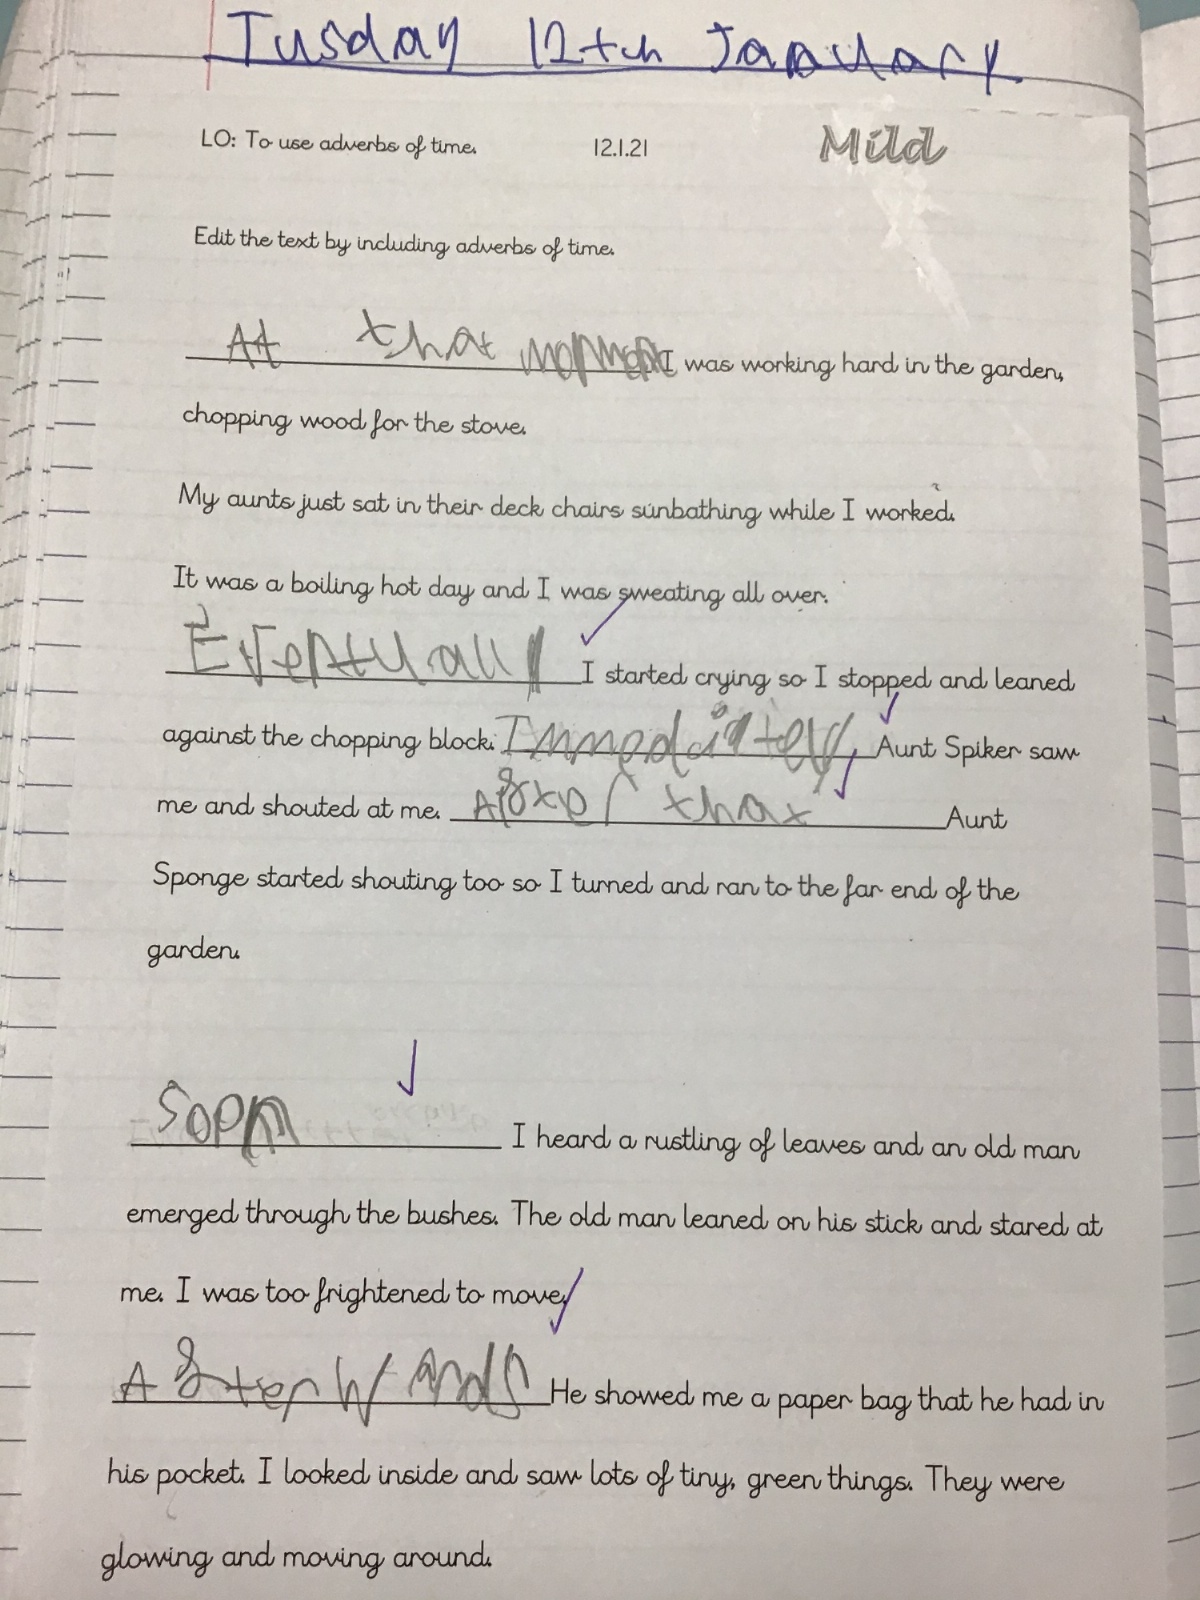 Tusday 12tch January
LO: To use adverbs of time. 12.1.21 Mild
Edit the text by including adverbs of time.
At that I was working hard in the garden,
chopping wood for the stove.
My aunts just sat in their deck chairs sunbathing while I worked.
It was a boiling hot day and I was sweating all over.
Eventually I started crying so I stopped and leaned
against the chopping block. Immediatley, Aunt Spiker saw
me and shouted at me. After that Aunt
Sponge started shouting too so I turned and ran to the far end of the
garden.
Soon I heard a rustling of leaves and an old man
emerged through the bushes. The old man leaned on his stick and stared at
me. I was too frightened to move.
AfterWards He showed me a paper bag that he had in
his pocket. I looked inside and saw lots of tiny, green things. They were
glowing and moving around.